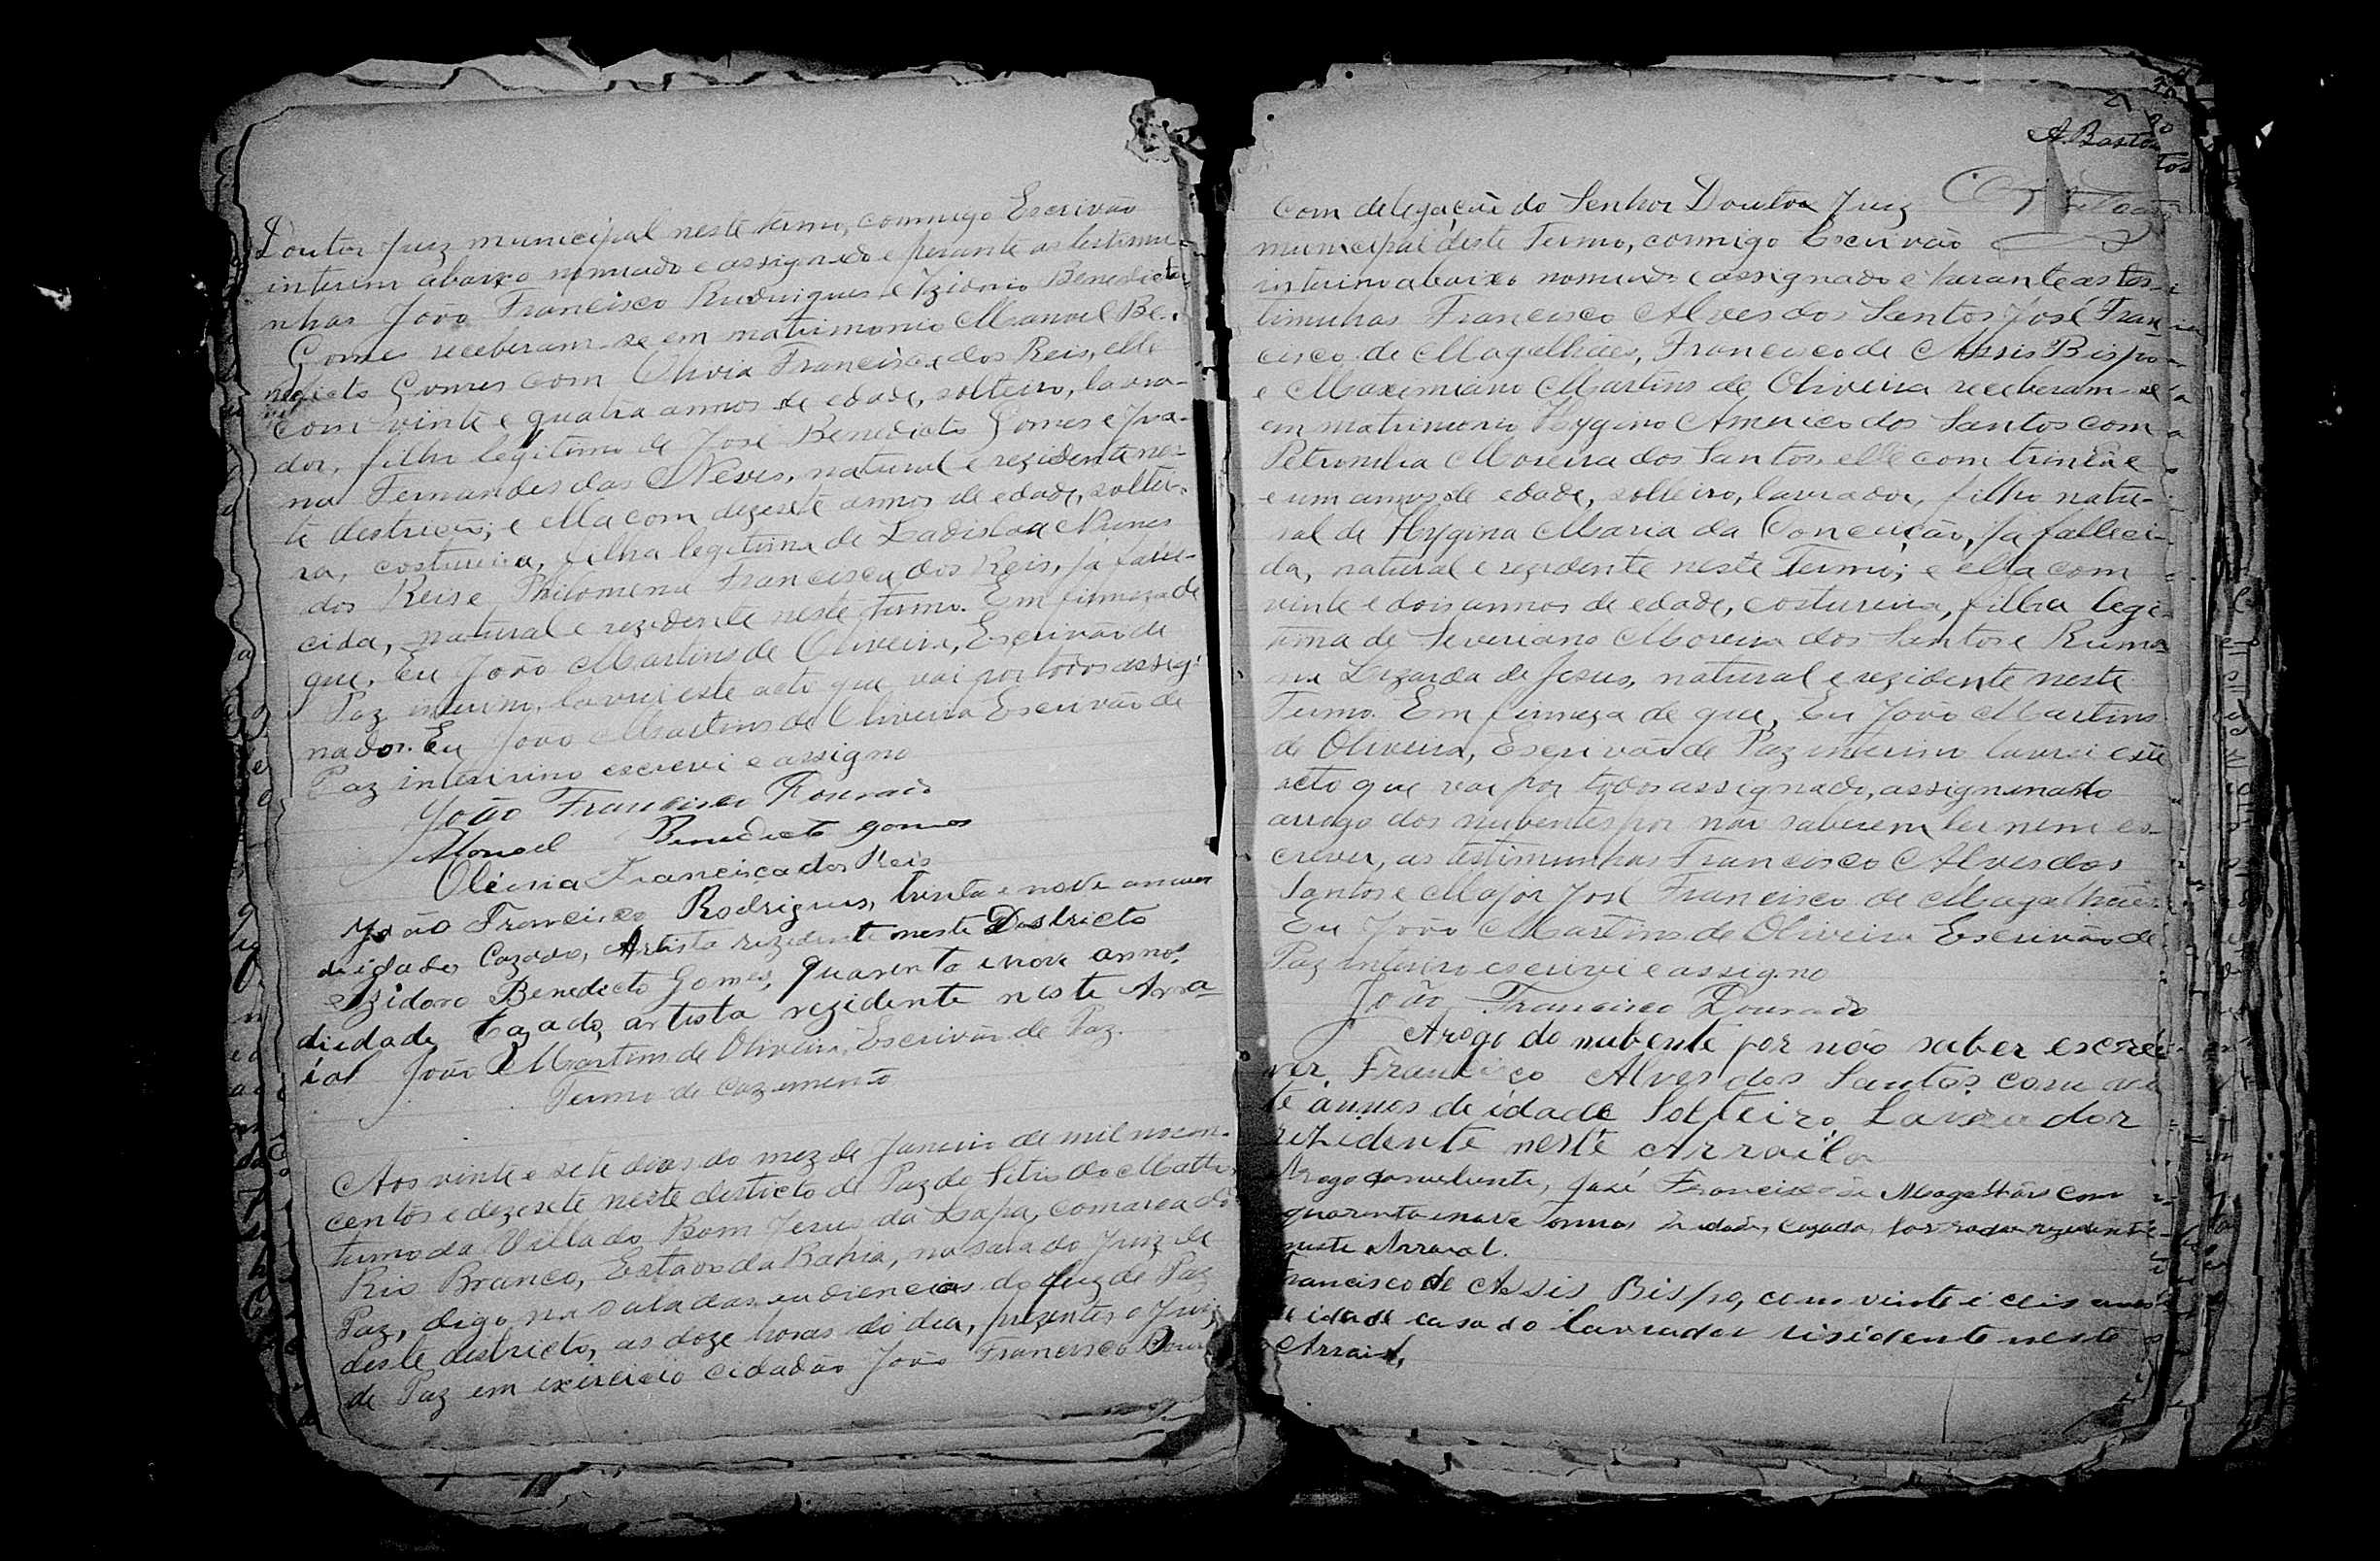 Doutor Juiz municipal neste termo, commigo Escrivão
interim abaixo nomeado e assignado e perante as testimu-
nhas João Francisco Rudrigues e Izidorio Benedicto
Gomes receberam-se em matrimonio Manoel Be-
nedicto Gomes com Olivia Francisca dos Reis, elle
com vinte e quatra annos de edade, solteiro, lavra-
dor, filho legitimo de José Benedicto Gomes e Joa-
na Fernandes das Neves, natural e rezidente nes-
te destricto; e ella com dezesete annos de edade, soltei-
ra, costureira, filha legitima de Ladislau Nunes
dos Reis e Philomena Francisca dos Reis, ja falle-
cida, natural e rezidente neste termo. Em firmeza de
que, Eu João Martins de Oliveira, Escrivão de
Paz interino, lavrei este acto que vai por todos assig-
nador. Eu João Martins de Oliveira Escrivão de
Paz interirino escrevi e assigno
João Francisco Dourado
Manoel Benedicto gomes
Olivia Francisca dos Reis
João Francisco Rodrigues, trinta e nove annos
de idade, Cazado, Artista rezidente neste Destricto
Izidoro Benedicto Gomes, quarenta e nove annos
diedade, Cazado, artista rezidente neste Arra-
ial João Martins de Oliveira, Escrivão de Paz.
Termo de Cazamento
Aos vinte e sete dias do mez de Janeiro de mil novecen-
centos e dezesete neste desticto de Paz do Sitio do Matto,
termo da Villa do Bom Jesus da Lapa, comarca do
Rio Branco, Estado da Bahia, na sala do Juiz de
Paz, digo na sala das audiencias do Juiz de Paz
deste destricto, as doze horas do dia, prezentes o Juiz
de Paz em exircicio cidadão João Francisco Dour
A. Bastos
Com delegação do Senhor Doutor Juiz
municipal deste Termo, commigo Escrivão
interino abaixo nomeado e assignado e perante as tes-
timunhas Francisco Alves dos Santos José Fran-
cisco de Magalhães, Francisco de Assis Bispo
e Maximiano Martins de Oliveira receberam-se
em matrimonio Hygino Americo dos Santos com
Petronilia Moreira dos Santos, elle com trinta e
e um annos de edade, solteiro, lavrador, filho natu-
ral de Hygina Maria da Conceição, ja falleci-
da, natural e rezidente neste Termo; e ella com
vinte e dois annos de edade, costureira, filha legi-
tima de Severiano Moreira dos Santos e Rumo-
na Lizarda de Jesus, natural e rezidente neste
Termo. Em firmeza de que, Eu João Martins
de Oliveira, Escrivão de Paz interino lavrei este
acto que vai por todos assignado, assignando
arrogo dos nubentes por não saberem ler nem es-
crever, as testimunhas Francisco Alves dos
Santos e Major José Francisco de Magalhães.
Eu João Martins de Oliveira Escrivão de
Paz interino escrevi e assigno
João Francisco Dourado
Arogo do nubente por não saber escre
ver, Francisco Alves dos Santos com
te annos de idade Solteiro Lavrador
rezidente neste Arraila
Arogo da nubente, José Francisco de Magalhães com
quarenta e nove annos de idade, cazado, lavrador rezidente
neste Arraial.
Francisco de Assis Bispo, com vinte i ceis annos
de idade casado lavrador risidente neste
Arraial,